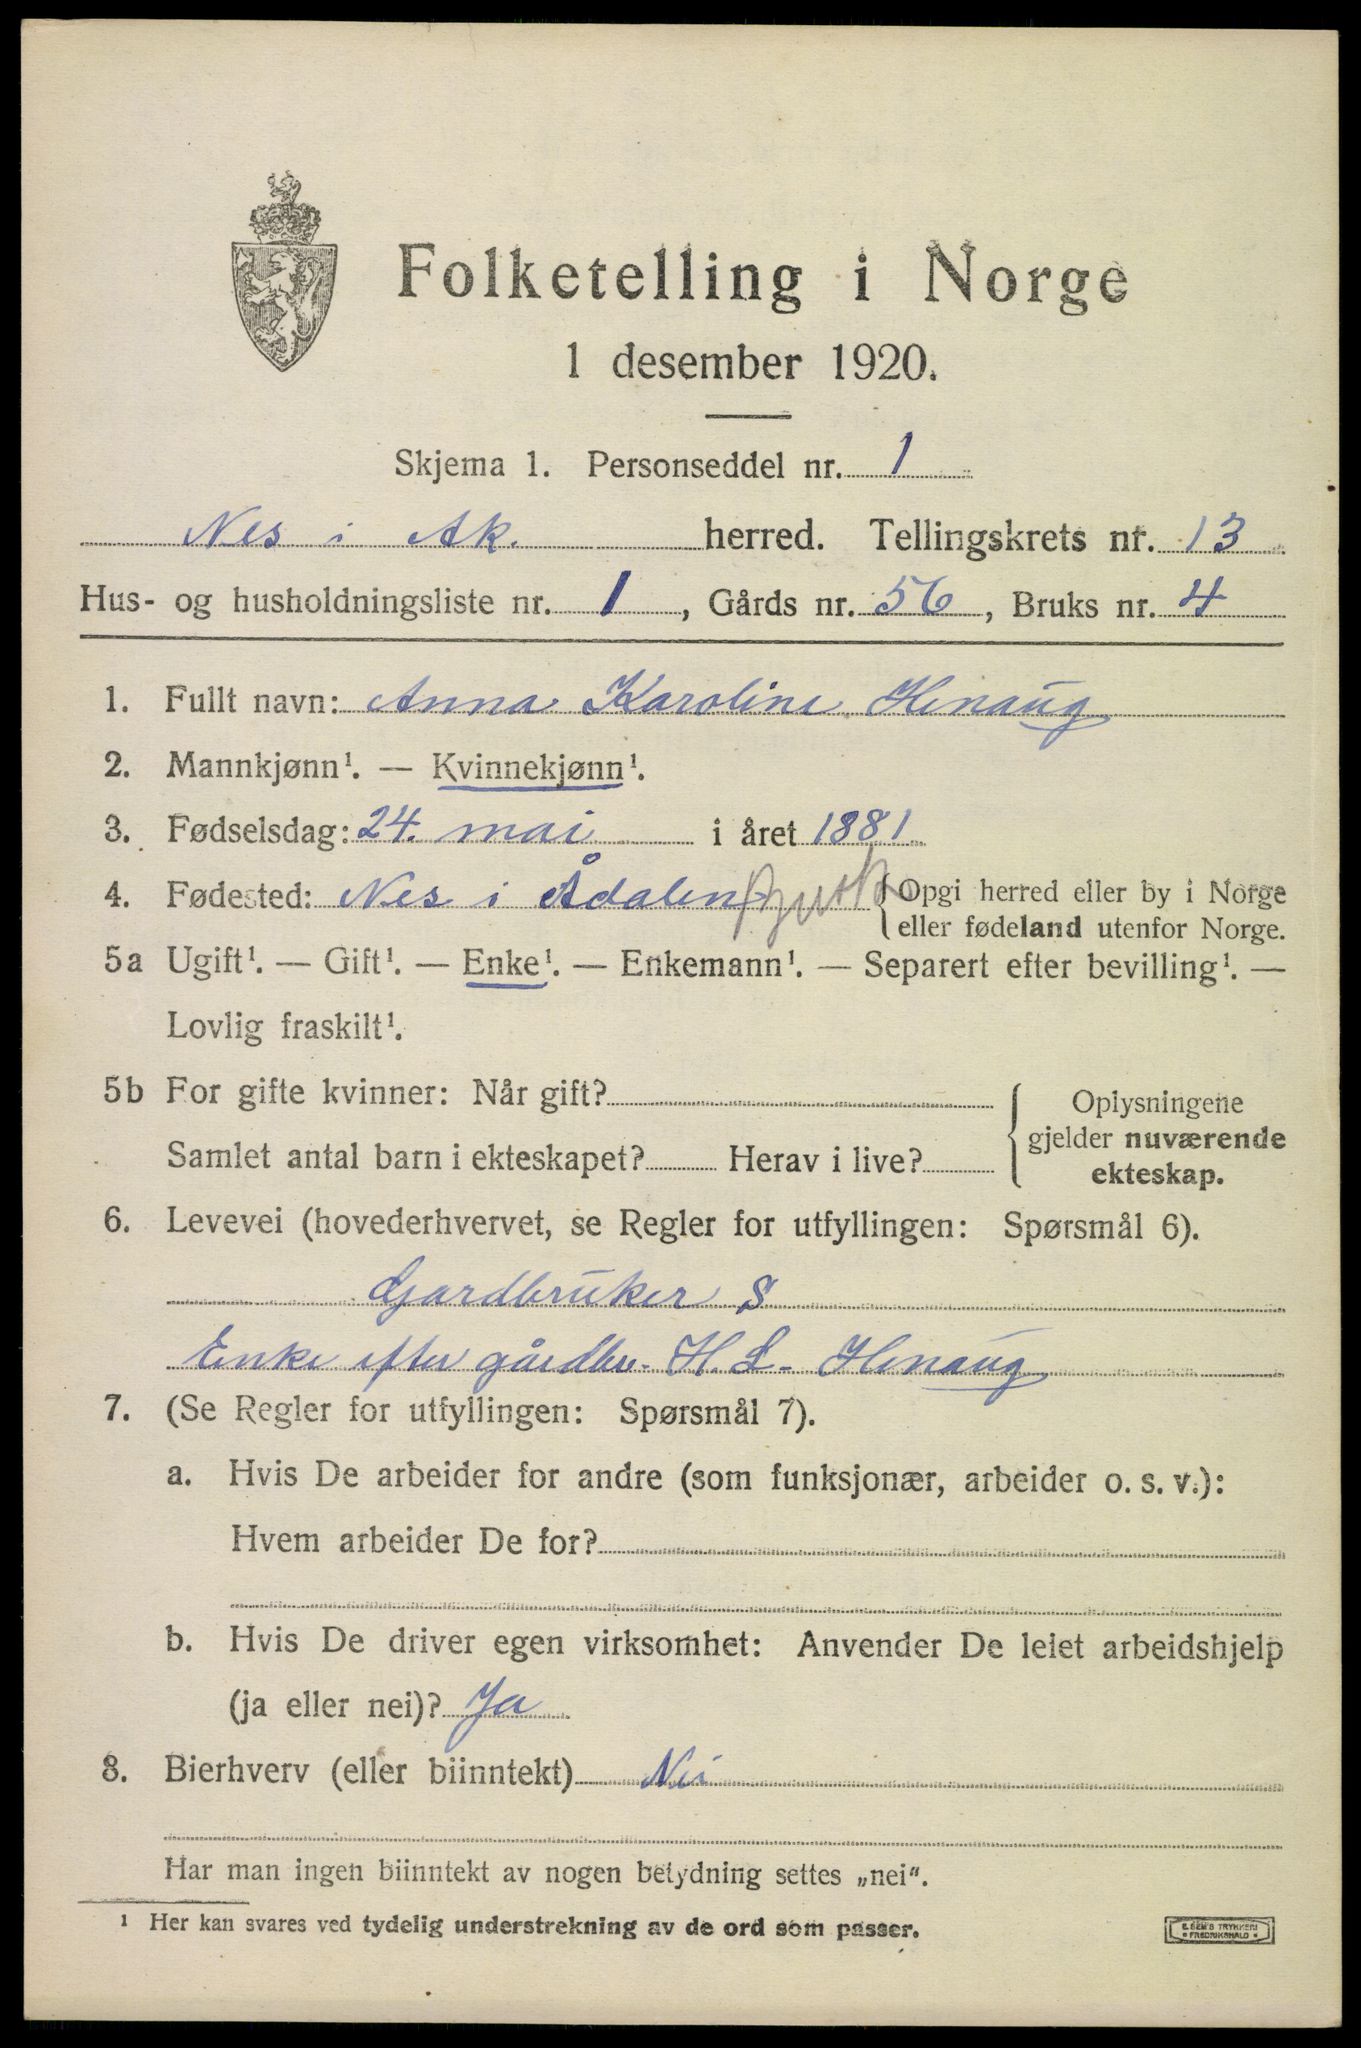 Folketelling i Norge
1 desember 1920.
Skjema 1. Personseddel nr. 1
Nes i Ak. herred. Tellingskrets nr. 13
Hus- og husholdningsliste nr. 1, Gårds nr. 56, Bruks nr. 4
1. Fullt navn: Anna Karoline Henaug
2. Mannkjønn¹. — Kvinnekjønn¹.
3. Fødselsdag: 24. mai i året 1881
4. Fødested: Nes i Ådalen { Opgi herred eller by i Norge
eller fødeland utenfor Norge.
5a Ugift¹. — Gift¹. — Enke¹. — Enkemann¹. — Separert efter bevilling¹. —
Lovlig fraskilt¹.
5b For gifte kvinner: Når gift?
Samlet antal barn i ekteskapet? Herav i live?
{ Oplysningene
gjelder nuværende
ekteskap.
6. Levevei (hovederhvervet, se Regler for utfyllingen: Spørsmål 6).
Gardbruker S
Enke efter gårdbr. H. L. Henaug
7. (Se Regler for utfyllingen: Spørsmål 7).
a. Hvis De arbeider for andre (som funksjonær, arbeider o. s. v.):
Hvem arbeider De for?
b. Hvis De driver egen virksomhet: Anvender De leiet arbeidshjelp
(ja eller nei)? Ja
8. Bierhverv (eller biinntekt) Nei
Har man ingen biinntekt av nogen betydning settes „nei".
¹ Her kan svares ved tydelig understrekning av de ord som passer.
E. SEM'S TRYKKERI
• FREDRIKSHALD •